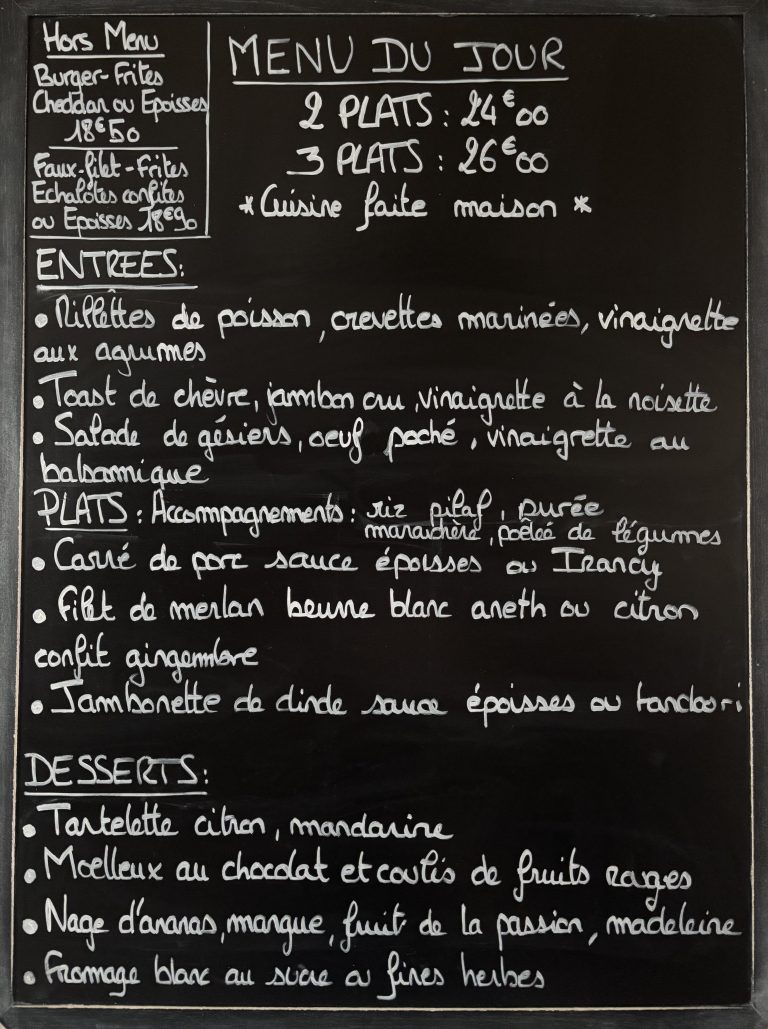 Hors Menu
Burger-Frites
Cheddar ou Epoisses
18€50
Faux-filet-Frites
Echalôtes confites
ou Epoisses 18€90
MENU DU JOUR
2 PLATS : 24€00
3 PLATS : 26€00
*Cuisine faite maison *
ENTREES:
• Rillettes de poisson, crevettes marinées, vinaigrette
aux agrumes
• Toast de chèvre, jambon cru, vinaigrette à la noisette
• Salade de gésiers, oeuf poché, vinaigrette au
balsamique
PLATS : Accompagnements : riz pilaf, purée
maraichère, poêleé de légumes
• Carré de porc sauce époisses ou Irancy
• Filet de merlan beurre blanc aneth ou citron
confit gingembre
• Jambonette de dinde sauce époisses ou tandoori
DESSERTS:
• Tartelette citron, mandarine
• Moelleux au chocolat et coulis de fruits rouges
• Nage d'ananas, mangue, fruit de la passion, madeleine
• Fromage blanc au sucre ou fines herbes